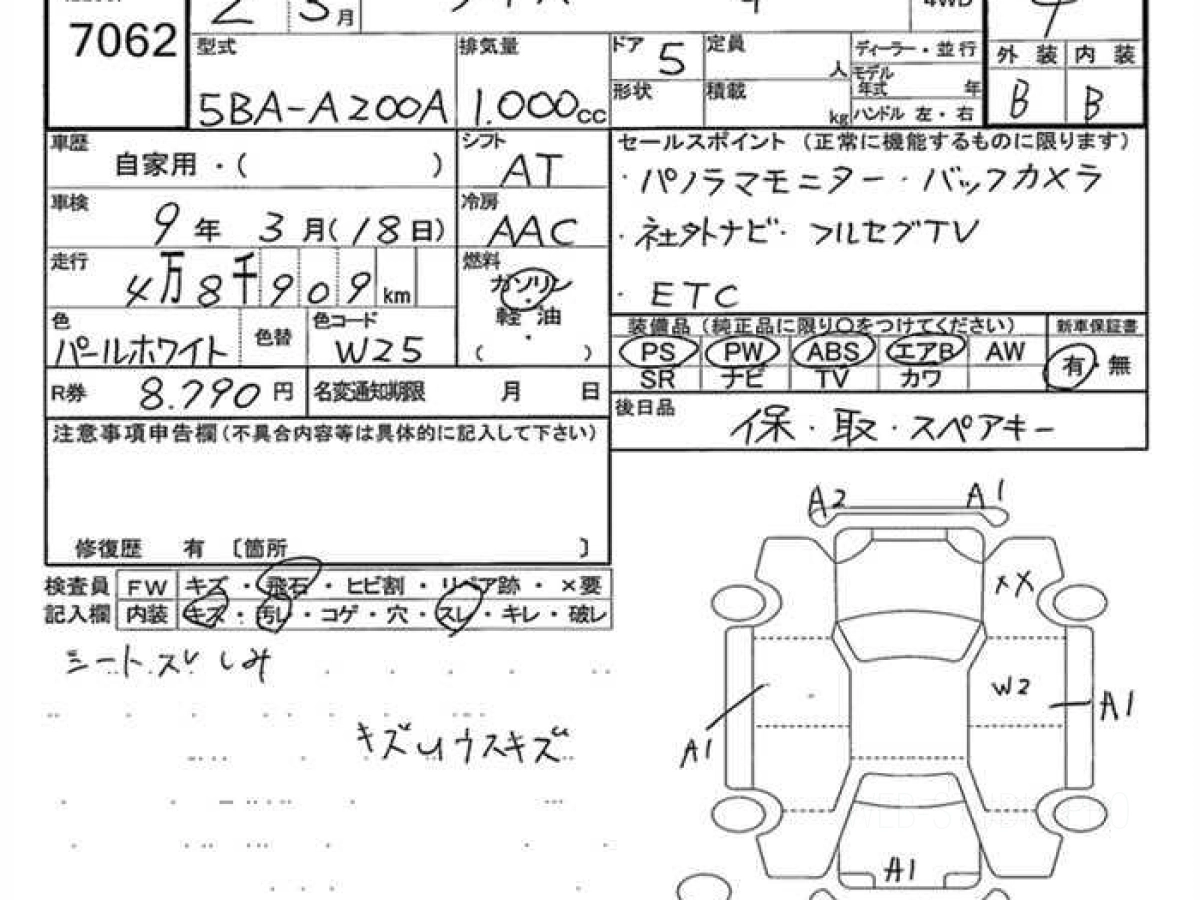 7062
2 3月
4WD
4
型式 5BA-A200A
排気量 1.000cc
ドア 5
形状
定員 人
積載 kg
ディーラー・並行
モデル年式 年
ハンドル 左・右
外装 内装
B B
車歴 自家用・( )
シフト AT
車検 9年 3月(18日)
冷房 AAC
走行 4万8千909km
燃料 ガソリン・軽油・( )
色 パールホワイト
色替
色コード W25
R券 8.790円
名変通知期限 月 日
セールスポイント(正常に機能するものに限ります)
・パノラマモニター・バックカメラ
・社外ナビ・フルセグTV
・ETC
装備品(純正品に限り○をつけてください)
PS PW ABS エアB AW
SR ナビ TV カワ
新車保証書
有・無
後日品 保・取・スペアキー
注意事項申告欄(不具合内容等は具体的に記入して下さい)
修復歴 有〔箇所 〕
検査員記入欄
FW キズ・飛石・ヒビ割・リペア跡・×要
内装 キズ・汚レ・コゲ・穴・スレ・キレ・破レ
シートスレ しみ
キズ ウスキズ
A2 A1
XX
W2
A1
A1
A1